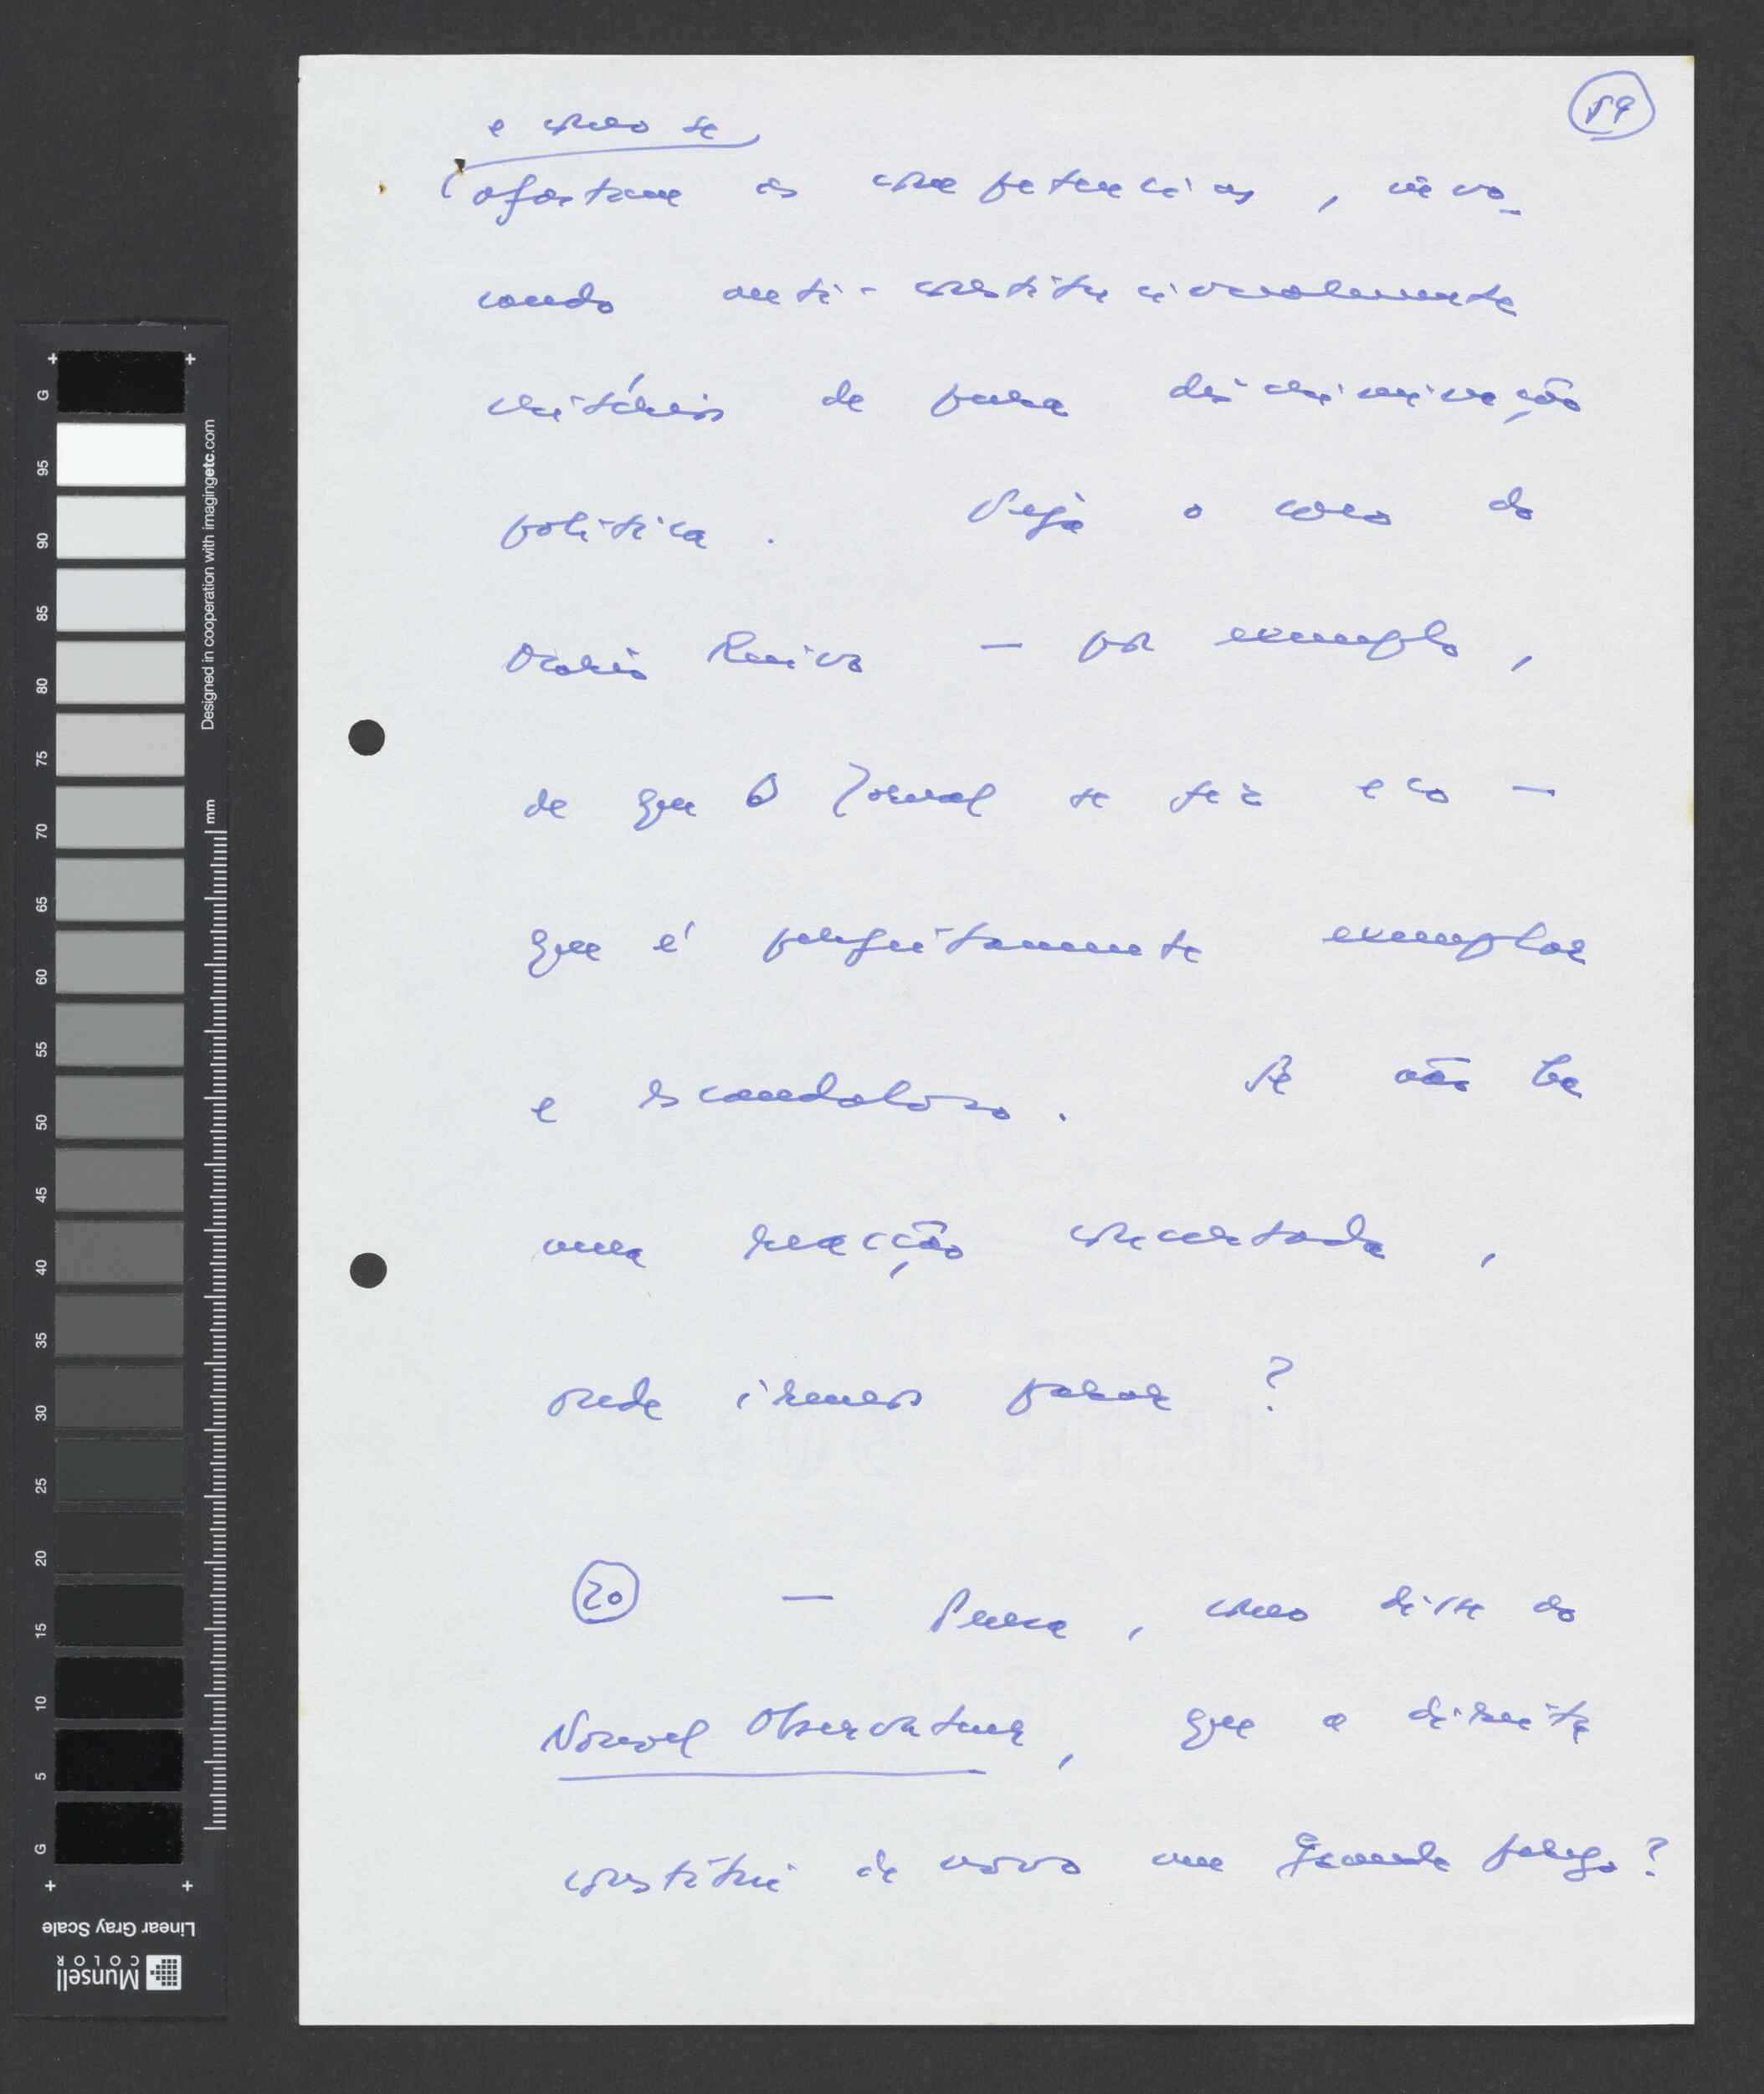 59
e como se
afastam as competências, invo-
cando anti-constitucionalmente
critérios de pura discriminação
política. Veja o caso do
Mário Ruivo — por exemplo,
de que O Jornal se fez eco —
que é perfeitamente exemplar
e escandaloso. Se não há
uma reacção concertada,
onde iremos parar?
20 — Pensa, como disse ao
Nouvel Observateur, que a direita
constitui de novo um grande perigo?
G
95
90
85
80
75
70
65
60
55
50
45
40
35
30
25
20
15
10
5
G
mm
Designed in cooperation with imagingetc.com
Linear Gray Scale
Munsell
COLOR